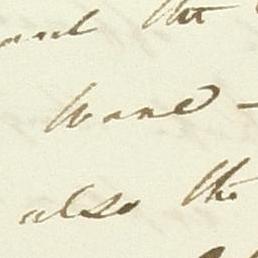 and the
hand -
also the